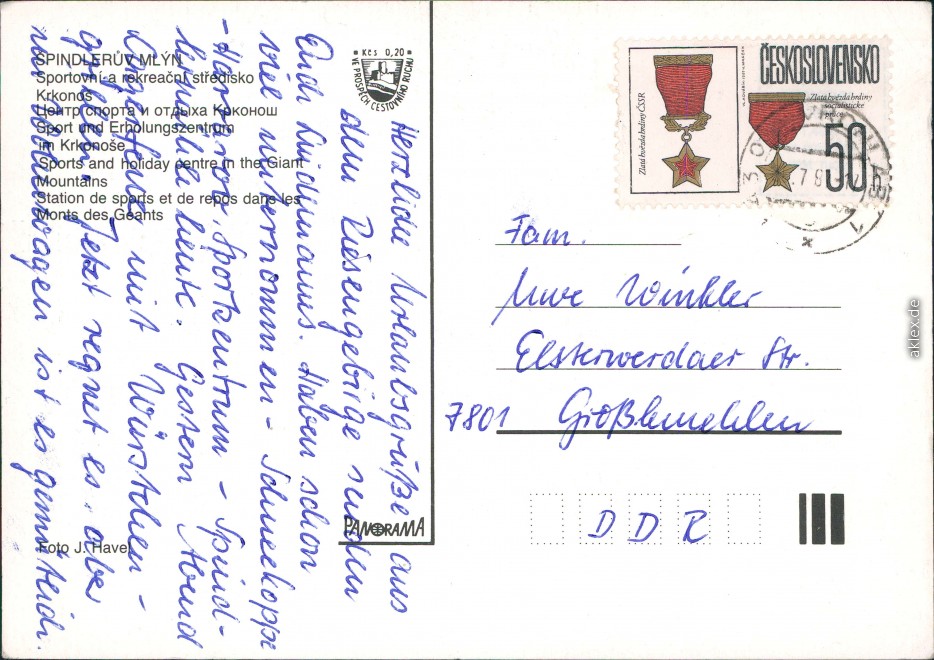 ŠPINDLERŮV MLÝN
Sportovní a rekreační středisko
Krkonoš
Центр спорта и отдыха Крконош
Sport und Erholungszentrum
im Krkonoše
Sports and holiday centre in the Giant
Mountains
Station de sports et de repos dans les
Monts des Géants
Foto J. Havel
Kčs 0,20
VE PROSPĚCH CESTOVNÍHO RUCHU
PANORAMA
Herzliche Urlaubsgrüße aus
dem Riesengebirge senden
Euch Luidemanns. Haben schon
viel unternommen - Schneekoppe
- Harrachov, Sportzentrum - Spind-
lermühle heute. Gestern Abend
Lagerfeuer mit Würstchen -
grillen. Jetzt regnet es, aber
im Wohnwagen ist es gemütlich.
Zlatá hvězda hrdiny ČSSR
ČESKOSLOVENSKO
Zlatá hvězda hrdiny
socialistické
práce
50h
Fam.
Uwe Winkler
Elsterwerdaer Str.
7801 Großkmehlen
DDR
aklex.de